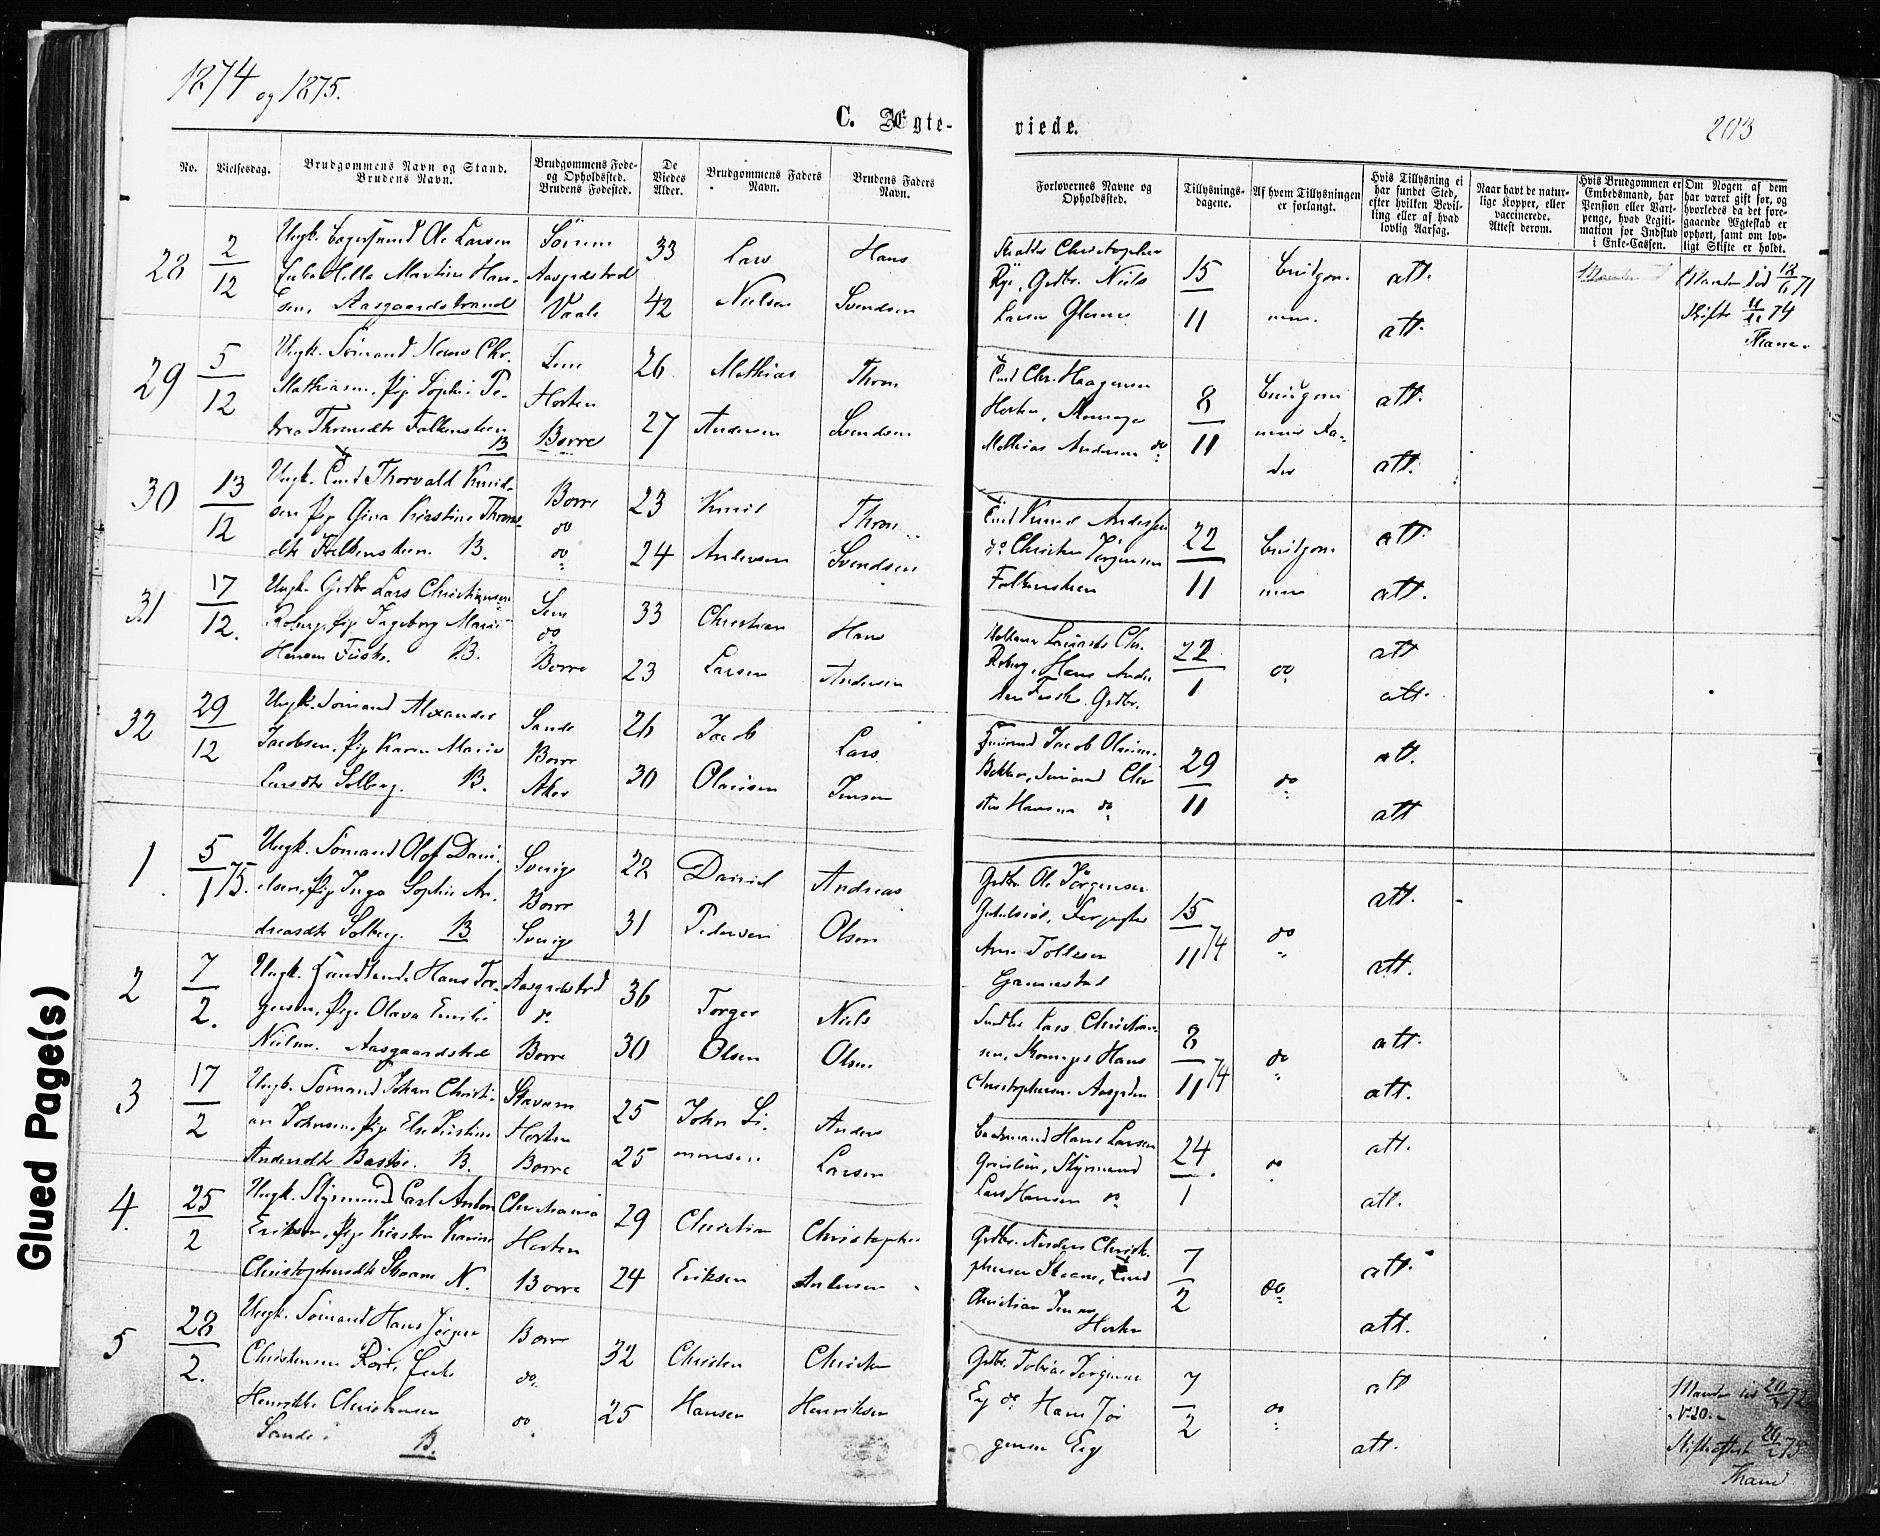 1874 og 1875.
C. Ægte-
viede.
203
No.
Vielsesdag.
Brudgommens Navn og Stand.
Brudens Navn.
Brudgommens Føde-
og Opholdssted.
Brudens Fødested.
De
Viedes
Alder.
Brudgommens Faders
Navn.
Brudens Faders
Navn.
Forlovernes Navne og
Opholdssted.
Tillysnings-
dagene.
Af hvem Tillysningen
er forlangt.
Hvis Tillysning ei
har fundet Sted,
efter hvilken Bevil-
ling eller af hvad
lovlig Aarsag.
Naar havt de natur-
lige Kopper, eller
vaccinerede.
Attest derom.
Hvis Brudgommen er
Embedsmand, har
Pension eller Vart-
penge, hvad Legiti-
mation for Indskud
i Enke-Cassen.
Om Nogen af dem
har været gift før, og
hvorledes da det fore-
gaaende Ægteskab er
ophørt, samt om lov-
ligt Skifte er holdt.
28
2/12
Ungk. Ole Larsen
Enke Helle Martine Han-
sen, Aasgaardstrand
Aasgrdstrd
Vaale
33
42
Lars
Nielsen
Hans
Svendsen
Christopher
Rye, Grdbr. Niels
Larsen
15/11
Brudgom-
men
att.
att.
Manden død 18/6 71
Skifte 11/11 74
Thane.
29
5/12
Ungk. Sømand Chr.
Mathiasen, Pig Sophie Pe-
trea Thronsdtr Falkensteen
B
Sem
Horten
Borre
26
27
Mathias
Andersen
Thron
Svendsen
Chr. Haagensen
Horten, Skomager
Mathias Andersen do
8/11
Brudgom
mens Fa-
der
att.
att.
30
13/12
Ungk. Thorvald Knud-
sen Pig Gina Kirstine Throns-
dtr Falkensteen. B.
Borre
do
do
23
24
Knud
Andersen
Thron
Svendsen
Knud Andersen
do Christen Jørgensen
Falkensteen
22/11
Brudgom-
men
att.
att.
31
17/12.
Ungk. Grdbr Lars Christiansen
Roberg, Pig Ingeborg Marie
Hansen Fuske. B.
Sem
do
Borre
33
23
Christian
Larsen
Hans
Andersen
Chr.
Roberg, Hans Ander
sen Fuske Grdbr.
22/1
do
att
att.
32
29/12
Ungk. Sømand Alexander
Jacobsen, Pig Karen Marie
Larsdtr Solberg. B.
Sande
Borre
Aker
26
30
Jacob
Olausen
Lars
Jensen
Sømand Jacob Olausen
Bakken, Sømand Chri
stian Hansen do
29/11
do
att.
att
1
5/1 75.
Ungk. Sømand Olof Dani-
elsen, Pig Inga Sophie An-
dreasdtr Solberg. B
Sverige
Borre
Sverige
22
31
Daniel
Pedersen
Andreas
Olsen
Grdbr. Ole Jørgensen
Arne Tollesen
Gannestad
15/11 74
do
att.
att.
2
7/2.
Ungk. Handlende Hans Tor-
gersen, Pige Olava Emilie
Nielsen. Aasgaardstrd
Aasgrdstrd
do
Borre
36
30
Torger
Olsen
Niels
Olsen
Lars Christian-
sen, Skomager Hans
Christophersen Aasgrdstr
8/11 74
do
att.
att.
3
17/2
Ungk. Sømand Johan Christi-
an Johnsen, Pige Else Kirstine
Andersdtr Bastøe. B.
Stavern
Horten
Borre
25
25
John Si-
monsen
Anders
Larsen
Baadsmand Hans Larsen
Styrmand
Lars Hansen do
24/1
do
att.
att.
4
25/2
Ungk. Styrmand Carl Anton
Eriksen, Pige Kirsten Karine
Christophersdtr Skaane N.
Christiania
Horten
Borre
29
24
Christian
Eriksen
Christopher
Andersen
Grdbr. Anders Christo-
phersen Skaane,
Christian Jensen
Horten
7/2
do
att.
att.
5
28/2.
Ungk. Sømand Hans Jørgen
Christensen Rørd Enke
Henrikke Christensen
Sande. B.
Borre
do
do
32
25
Christen
Hansen
Christen
Henriksen
Grdbr. Tobias Jørgensen
Eeg do Hans Jør
gensen Eeg
7/2
do
att
att.
Manden død 20/ 72
Skifteattest 26/2 75
Thane
Glued Page(s)